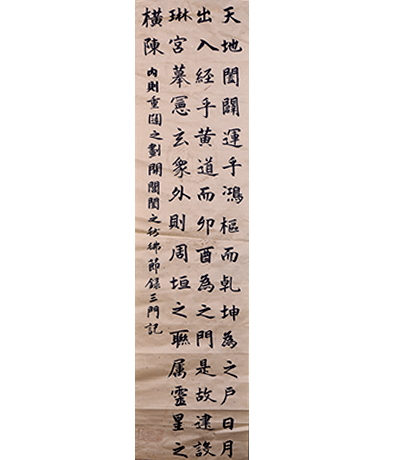 天地闔闢運乎鴻樞而乾坤為之戶日月
出入經乎黃道而卯酉為之門是故建設
琳宮摹憲玄象外則周垣之聯属靈星之
橫陳
內則重闥之劃開閶闔之彷彿節錄三門記